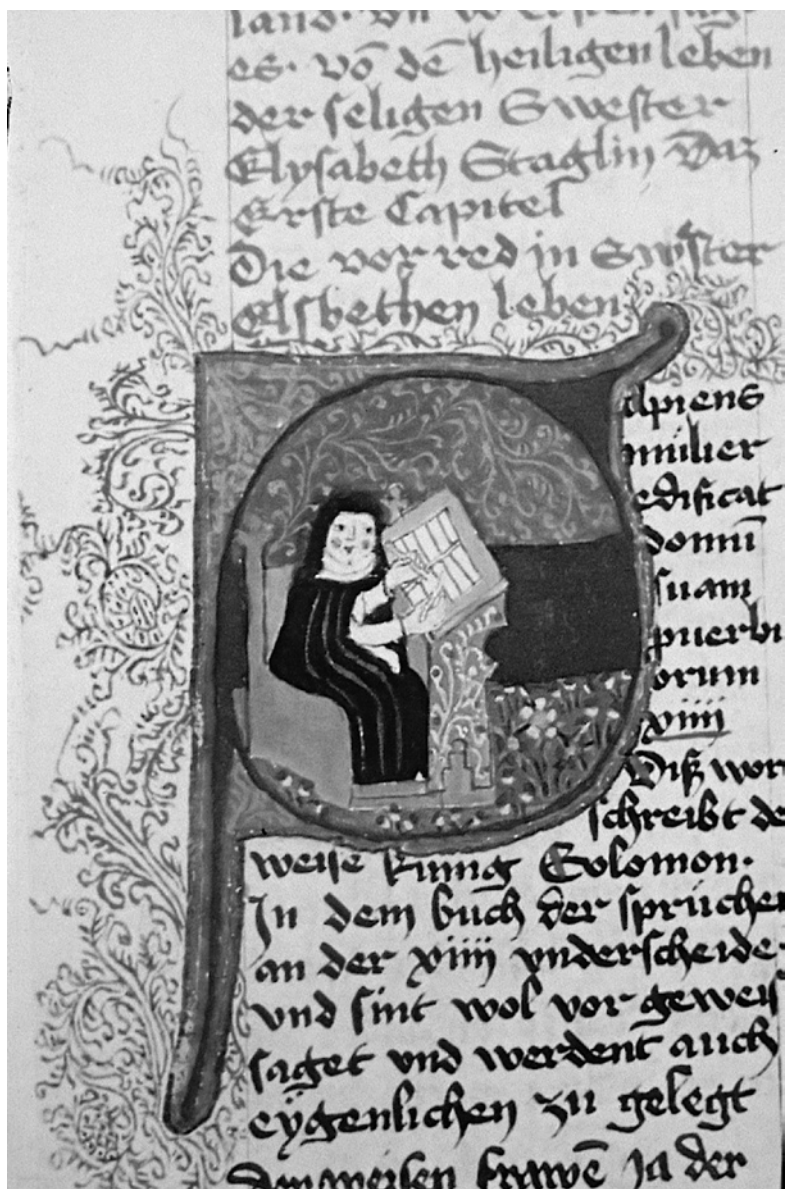 land. vn
es. vō dē heiligen leben
der seligen Swester
Elysabeth Staglin Daz
Erste Capitel
Die vor red in Swester
Elsbethen leben
apiens
mulier
edificat
domū
suam
puerbi
orum
xiiii
Diß wor
schreibt de
weise kunig Solomon.
In dem buch der sprüchen
an der xiiii vnderscheide.
vnd sint wol vor geweis
saget vnd werdent auch
eygenlichen zu gelegt
weisen frawē Ja der